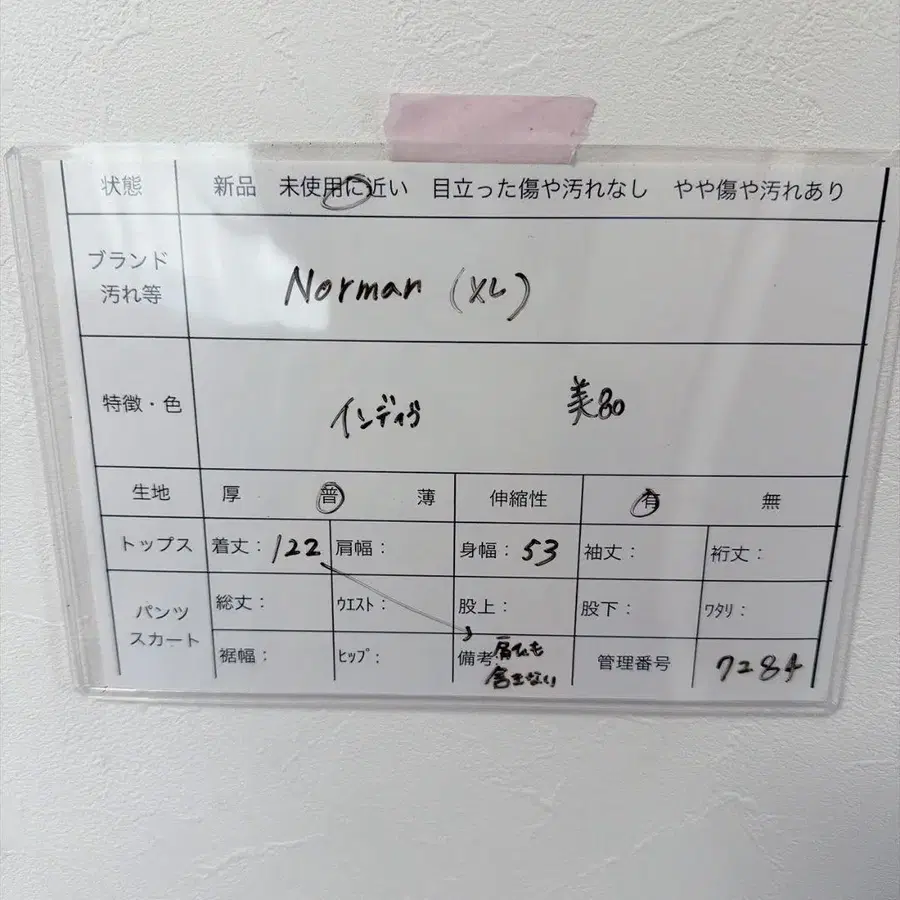 状態 新品 未使用に近い 目立った傷や汚れなし やや傷や汚れあり
ブランド
汚れ等
Norman (XL)
特徴・色 インディゴ 美品
生地 厚 普 薄 伸縮性 有 無
トップス 着丈：122 肩幅： 身幅：53 袖丈： 裄丈：
パンツ
スカート
総丈： ウエスト： 股上： 股下： ワタリ：
裾幅： ヒップ： 備考 肩ひも
含まない
管理番号 7284